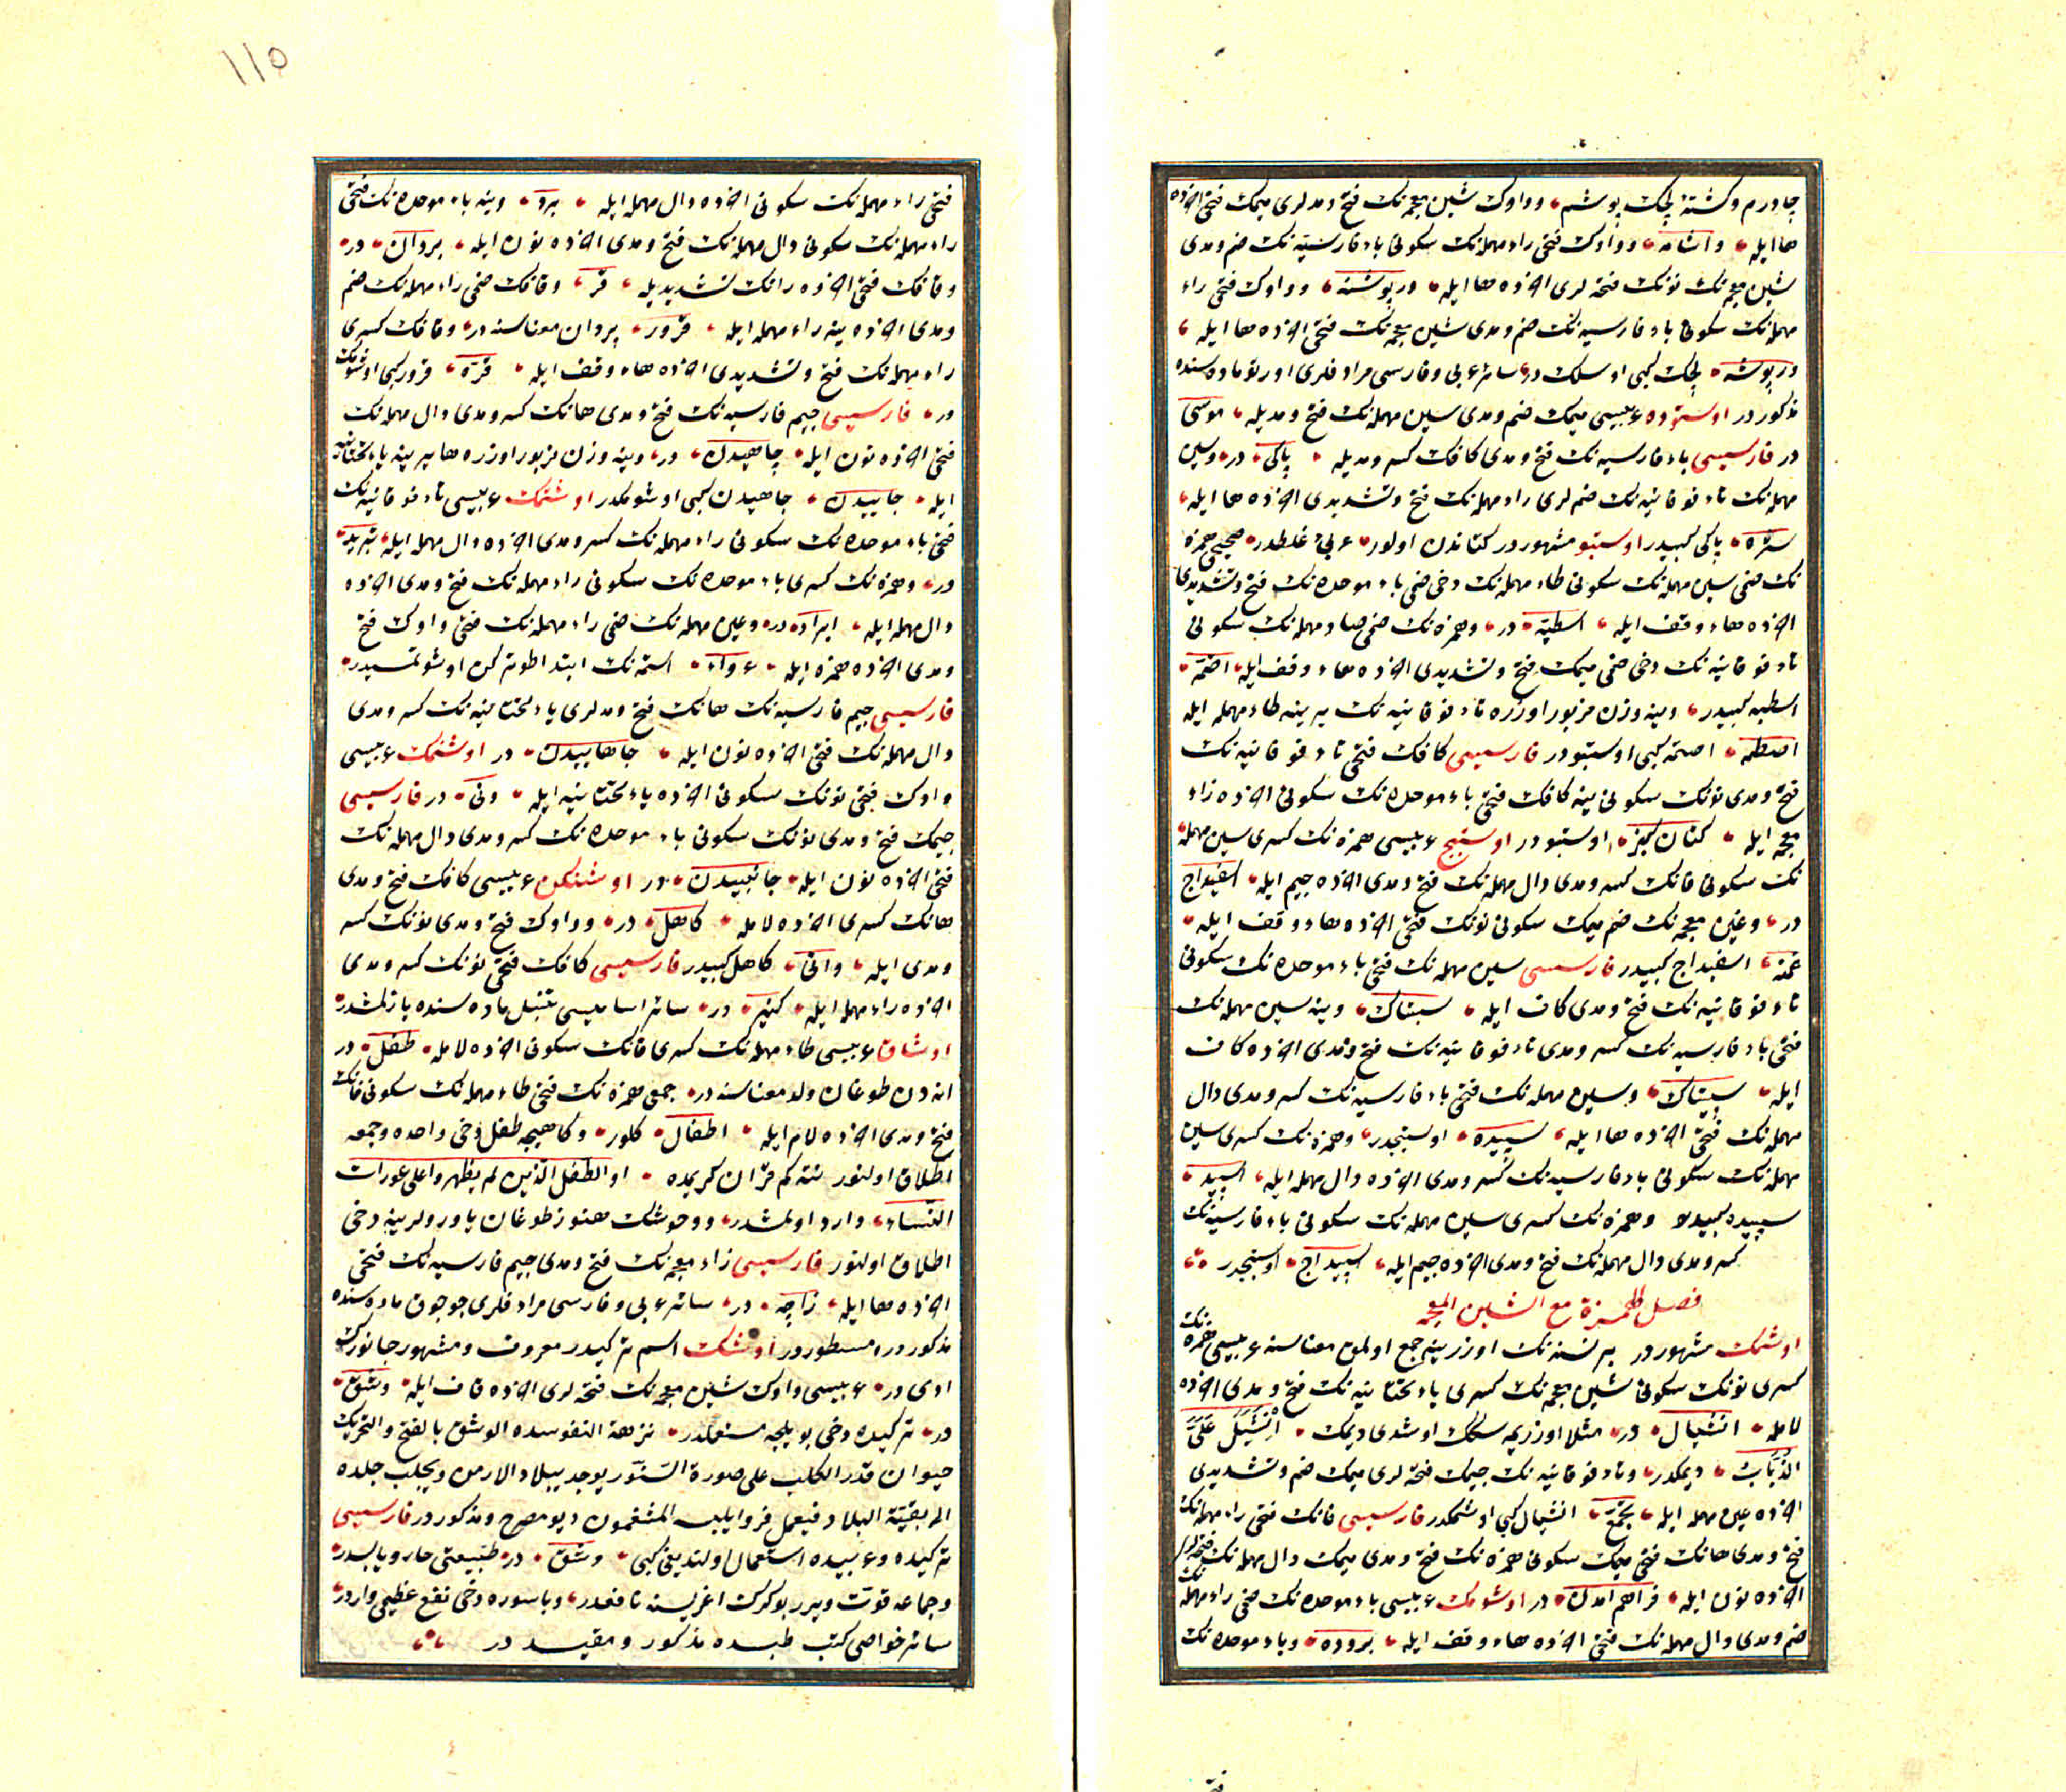 چادرم و کشته لچک پوشم، و واوک شین معجمه‌نک فتح و مدلری میمک فتحی اخرده
ها ایله، واشامه، و واوک فتحی راء مهمله‌نک سکونی باء فارسیه‌نک ضم و مدی
شین معجمه‌نک نونک فتحه‌لری اخرده ها ایله، ورپوشنه، و واوک فتحی راء
مهمله‌نک سکونی باء فارسیه‌نک ضم و مدی شین معجمه‌نک فتحی اخرده ها ایله،
ورپوشه، لچک کبی اوسلک در، سائر عربی و فارسی مرادفلری اورتو ماده‌سنده
مذکور در اوستوده عربیسی میمک ضم و مدی سین مهمله‌نک فتح و مدیله، موسی
در فارسیسی باء فارسیه‌نک فتح و مدی کافک کسر و مدیله، پاکی، در، و سین
مهمله‌نک تاء فوقانیه‌نک ضم‌لری راء مهمله‌نک فتح و تشدیدی اخرده ها ایله،
ستره، پاکی کبیدر اوستبو مشهور در کتاندن اولور، عربی غلطدر، صحیحی همزه
نک ضمی سین مهمله‌نک سکونی طاء مهمله‌نک دخی ضمی باء موحده‌نک فتح و تشدیدی
اخرده هاء وقف ایله، اسطبّه، در، و همزه‌نک ضمی صاد مهمله‌نک سکونی
تاء فوقانیه‌نک دخی ضمی میمک فتح و تشدیدی اخرده هاء وقف ایله، اصتمه،
اسطبه کبیدر، وینه وزن مزبور اوزره تاء فوقانیه‌نک یرینه طاء مهمله ایله
اصطمه، اصتمه کبی اوستبو در فارسیسی کافک فتحی تاء فوقانیه‌نک
فتح و مدی نونک سکونی ینه کافک فتحی باء موحده‌نک سکونی اخرده زاء
معجمه ایله، کتان کبز، اوستبو در اوستبج عربیسی همزه‌نک کسری سین مهمله
نک سکونی فانک کسر و مدی دال مهمله‌نک فتح و مدی اخرده جیم ایله، اسفیداج
در، و غین معجمه‌نک ضم میمک سکونی نونک فتحی اخرده هاء وقف ایله،
غمنه، اسفیداج کبیدر فارسیسی سین مهمله‌نک فتحی باء موحده‌نک سکونی
تاء فوقانیه‌نک فتح و مدی کاف ایله، سبتاک، وینه سین مهمله‌نک
فتحی باء فارسیه‌نک کسر و مدی تاء فوقانیه‌نک فتح و مدی اخرده کاف
ایله، سپیتاک، و سین مهمله‌نک فتحی باء فارسیه‌نک کسر و مدی دال
مهمله‌نک فتحی اخرده ها ایله، سپیده، اوستبجدر، و همزه‌نک کسری سین
مهمله‌نک سکونی باء فارسیه‌نک کسر و مدی اخرده دال مهمله ایله، اسپید،
سپیده کبیدر و همزه‌نک کسری سین مهمله‌نک سکونی باء فارسیه‌نک
کسر و مدی دال مهمله‌نک فتح و مدی اخرده جیم ایله، اسپیداج، اوستبجدر
فصل الهمزة مع الشین المعجمه
اوشمک مشهور در بر نسنه‌نک اوزرینه جمع اولمق معناسنه عربیسی همزه‌نک
کسری نونک سکونی شین معجمه‌نک کسری یاء تحتانیه‌نک فتح و مدی اخرده
لامله، انشیال، در، مثلا اوزریمه سکک اوشدی دیمک، انشیل علیّ
الذباب، دیمکدر، و تاء فوقانیه‌نک جیمک فتحه‌لری میمک ضم و تشدیدی
اخرده عین مهمله ایله، تجمّع، انشیال کبی اوشمکدر فارسیسی فانک فتحی راء مهمله‌نک
فتح و مدی هانک فتحی میمک سکونی همزه‌نک فتح و مدی میمک دال مهمله‌نک فتحه‌لری
اخرده نون ایله، فراهم آمدن، در اوشومک عربیسی باء موحده‌نک ضمی راء مهمله‌نک
ضم و مدی دال مهمله‌نک فتحی اخرده هاء وقف ایله، بروده، و باء موحده‌نک
فتـ
۱۱٥
فتحی راء مهمله‌نک سکونی اخرده دال مهمله ایله، برد، وینه باء موحده‌نک فتحی
راء مهمله‌نک سکونی دال مهمله‌نک فتح و مدی اخرده نون ایله، بردان، در،
و قافک فتحی اخرده رانک تشدیدیله، قر، و قافک ضمی راء مهمله‌نک ضم
و مدی اخرده ینه راء مهمله ایله، قرور، بردان معناسنه در، و قافک کسری
راء مهمله‌نک فتح و تشدیدی اخرده هاء وقف ایله، قرّه، قرور کبی اوشومک
در، فارسیسی جیم فارسیه‌نک فتح و مدی هانک کسر و مدی دال مهمله‌نک
فتحی اخرده نون ایله، چاهیدن، در، وینه وزن مزبور اوزره ها یرینه یاء تحتانیه
ایله، چاییدن، چاهیدن کبی اوشومکدر اوشتمک عربیسی تاء فوقانیه‌نک
فتحی باء موحده‌نک سکونی راء مهمله‌نک کسر و مدی اخرده دال مهمله ایله، تبرید،
در، و همزه‌نک کسری باء موحده‌نک سکونی راء مهمله‌نک فتح و مدی اخرده
دال مهمله ایله، ابراد، در، و عین مهمله‌نک ضمی راء مهمله‌نک فتحی واوک فتح
و مدی اخرده همزه ایله، عرواء، استمه‌نک ابتدا طوترکن اوشوتمسیدر،
فارسیسی جیم فارسیه‌نک هانک فتح و مدلری یاء تحتانیه‌نک کسر و مدی
دال مهمله‌نک فتحی اخرده نون ایله، چاهاییدن، در اوشنمک عربیسی
واوک فتحی نونک سکونی اخرده یاء تحتانیه ایله، ونی، در فارسیسی
جیمک فتح و مدی نونک سکونی باء موحده‌نک کسر و مدی دال مهمله‌نک
فتحی اخرده نون ایله، جانبیدن، در اوشنکن عربیسی کافک فتح و مدی
هانک کسری اخرده لامله، کاهل، در، و واوک فتح و مدی نونک کسر
و مدی ایله، وانی، کاهل کبیدر فارسیسی کافک فتحی نونک کسر و مدی
اخرده راء مهمله ایله، کنیر، در، سائر اسامیسی تنبل ماده‌سنده یازلمشدر،
اوشاق عربیسی طاء مهمله‌نک کسری فانک سکونی اخرده لامله، طفل، در
انه‌دن طوغان ولد معناسنه در، جمعی همزه‌نک فتحی طاء مهمله‌نک سکونی فانک
فتح و مدی اخرده لام ایله، اطفال، کلور، و کاهیجه طفل دخی واحده و جمعه
اطلاق اولنور نته‌کم قرآن کریمده، او الطفل الذین لم یظهروا علی عورات
النساء، وارد اولمشدر، و وحوشک هنوز طوغان یاورولرینه دخی
اطلاق اولنور فارسیسی زاء معجمه‌نک فتح و مدی جیم فارسیه‌نک فتحی
اخرده ها ایله، زاچه، در، سائر عربی و فارسی مرادفلری چوجوق ماده‌سنده
مذکور در و مسطور در اوشک اسم ترکیدر معروف و مشهور جانورک
ادی در، عربیسی واوک شین معجمه‌نک فتحه‌لری اخرده قاف ایله، وشق،
در، ترکیده دخی بویلجه مستعملدر، نزهة النفوسده الوشق بالفتح والتحریک
حیوان قدر الکلب علی صورة السنّور یوجد ببلاد الارمن ویجلب جلده
الی بقیّة البلاد فیعمل فروا یلبسه المتنعمون دیو مصرح و مذکور در فارسیسی
ترکیده و عربیده استعمال اولندیغی کبی، وشق، در، طبیعتی حار و یابسدر،
و جماعه قوت ویرر بوکرک اغریسنه نافعدر، و باسوره دخی نفع عظیمی واردر،
سائر خواصی کتب طبده مذکور و مقیددر